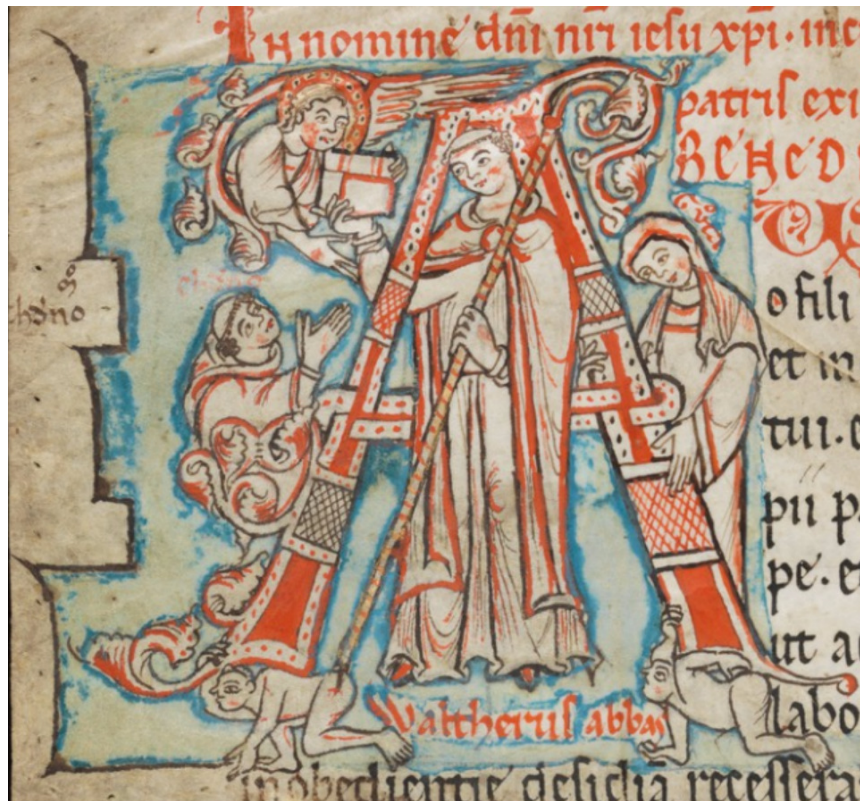 In nomine dn̄i nr̄i iesu xp̄i · inc
patris exi
BENED
AUS
o fili
et in
tui · e
pii p
pe · et
ut a
labo
Waltherus abbas
inobedientie desidiā recessera